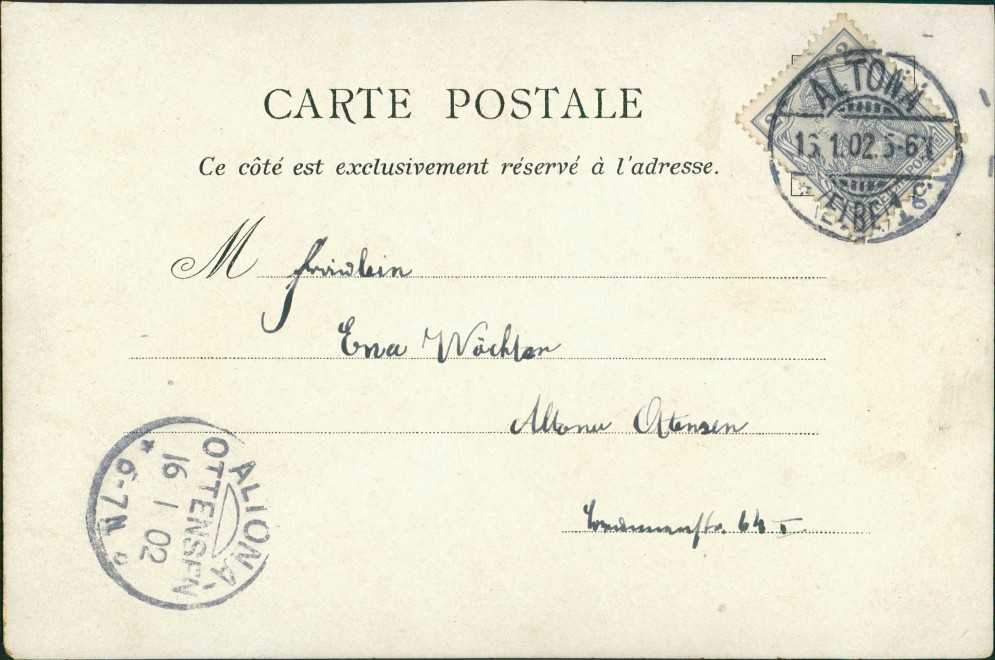 CARTE POSTALE
Ce côté est exclusivement réservé à l'adresse.
ALTONA
1.02.5-6
(ELBE)
2
2
M Fräulein
Erna Wächter
Altona Ottensen
64 I
ALTONA-
OTTENSEN
16 1 02
* 6-7N